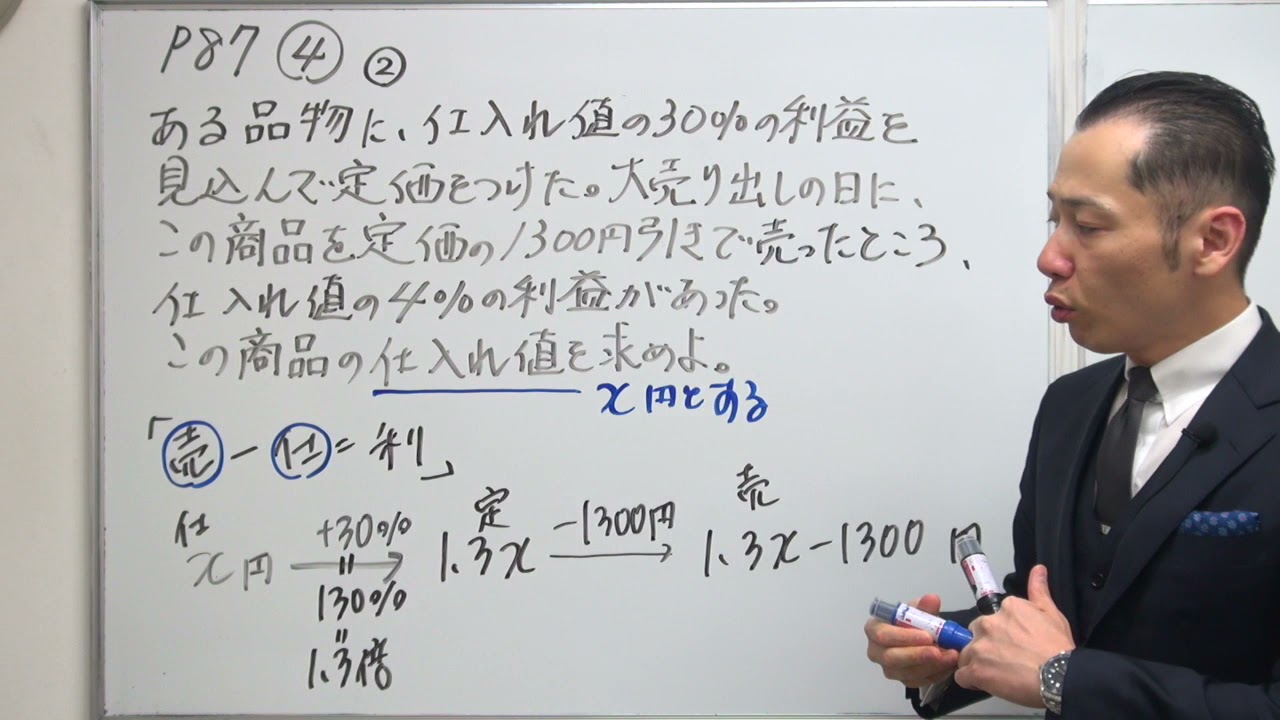 P87 ④ ②
ある品物に、仕入れ値の30%の利益を
見込んで定価をつけた。大売り出しの日に、
この商品を定価の1300円引きで売ったところ、
仕入れ値の4%の利益があった。
この商品の仕入れ値を求めよ。
x円とする
「売-仕=利」
仕 定 売
x円 +30% 1.3x -1300円 1.3x-1300円
=
130%
=
1.3倍